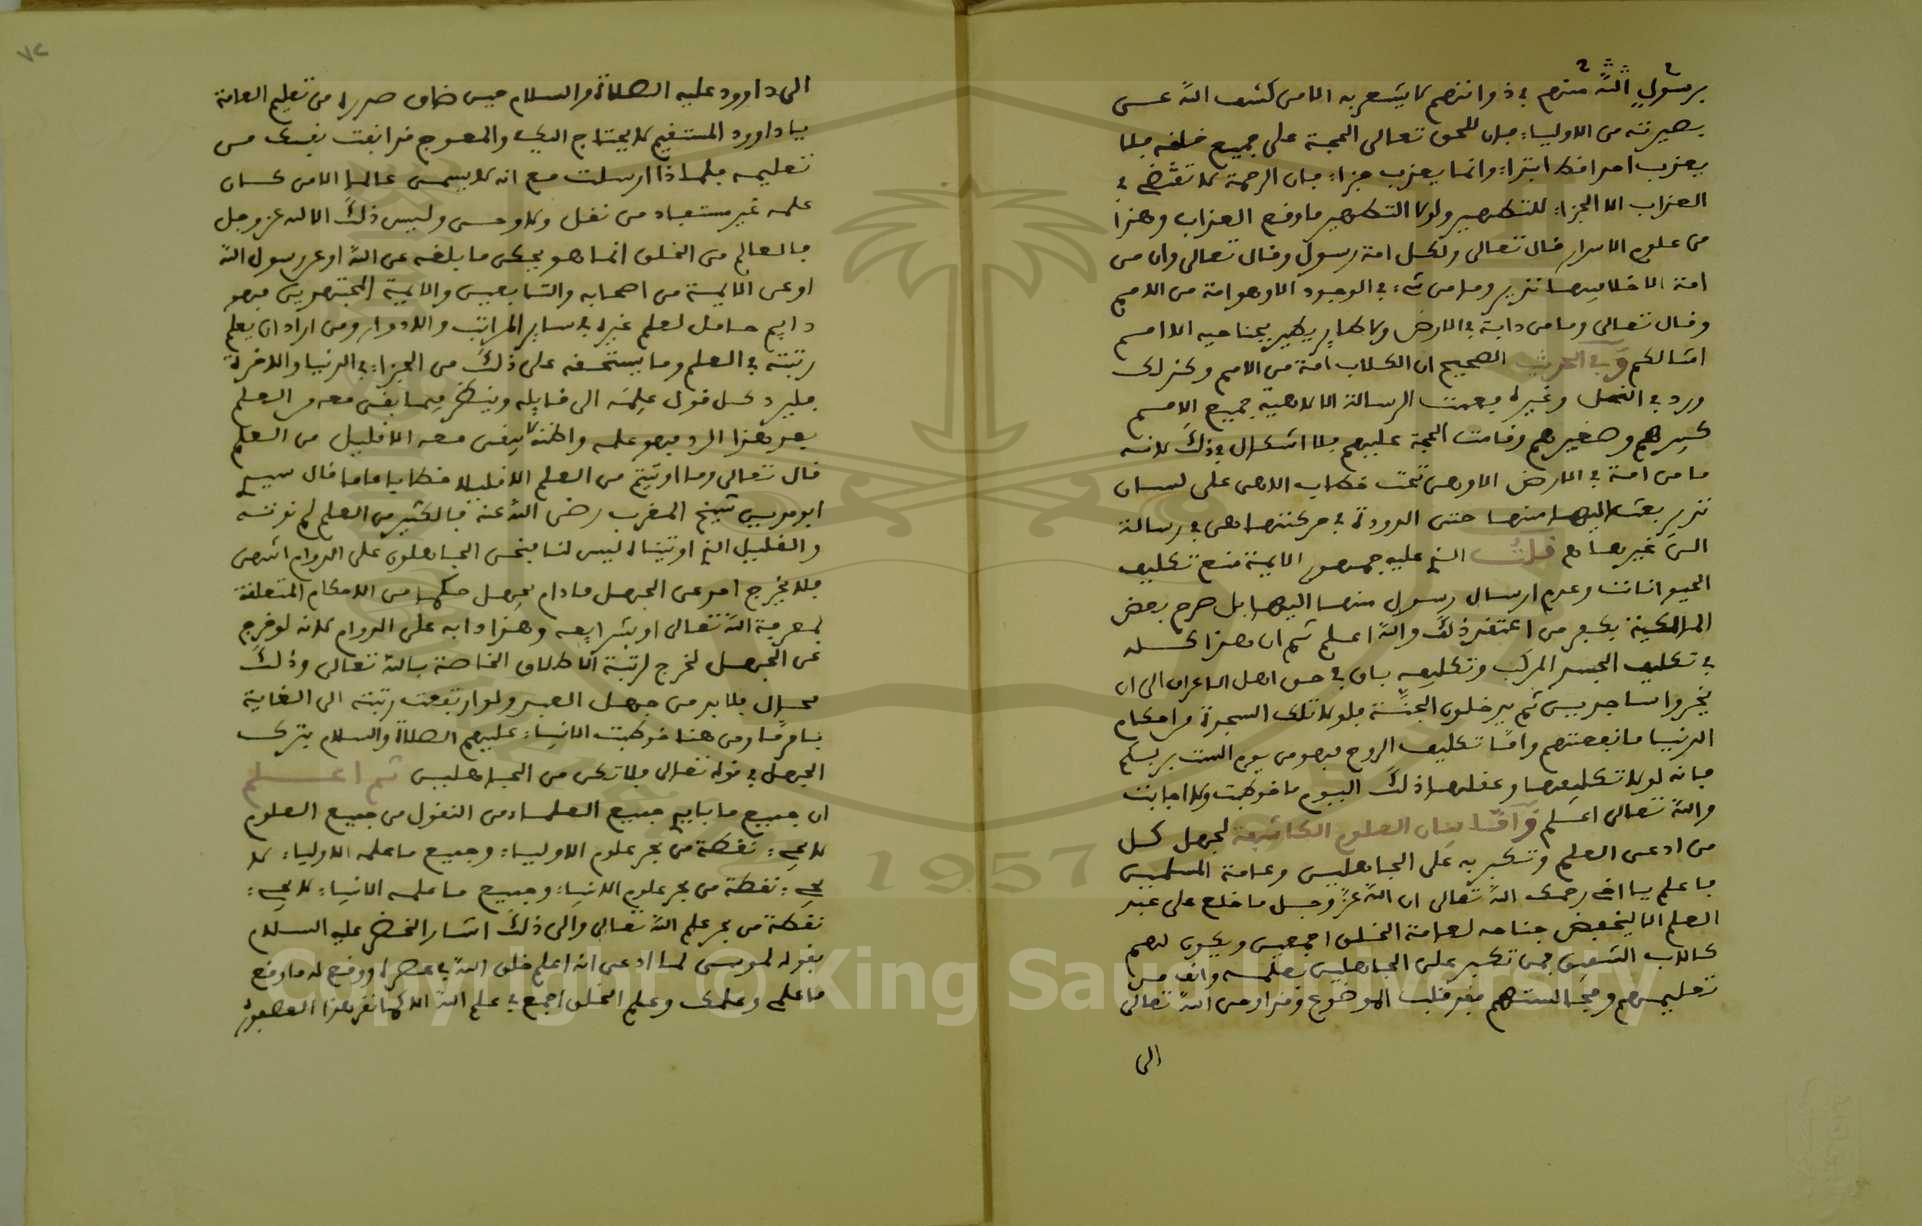 برسول الله منهم في ذواتهم لا يشعر به الا من كشف الله عن
بصيرته من الاولياء فان للحق تعالى الحجة على جميع خلقه فلا
يعذب احدا قط ابتداء وانما يعذب جزاء فان الرحمة لا تقتضي في
العذاب الا الجزاء للتطهير ولولا التطهير ما وقع العذاب وهذا
من علوم الاسرار قال تعالى ولكل امة رسول وقال تعالى وان من
امة الا خلا فيها نذير وما من شيء في الوجود الا وهو امة من الامم
وقال تعالى وما من دابة في الارض ولا طاير يطير بجناحيه الا امم
امثالكم وفي الحديث الصحيح ان الكلاب امة من الامم وكذلك
ورد في النمل وغيره فعمت الرسالة الالاهية جميع الامم
كبيرهم وصغيرهم وقامت الحجة عليهم فلا اشكال في ذلك لانه
ما من امة في الارض الا وهي تحت خطاب الاهي على لسان
نذير بعث اليها منها حتى الدودة في حركتها هي في رسالة
الى غيرها قلت الذي عليه جمهور الايمة منع تكليف
الحيوانات وعدم ارسال رسول منها اليها بل صرح بعض
المالكية بكفر من اعتقد ذلك والله اعلم ثم ان هذا كله
في تكليف الجسد المركب وتكليفه باق في حق اهل الاعراف الى ان
يخروا ساجدين ثم يدخلون الجنة فلولا تلك السجدة من احكام
الدنيا ما نفعتهم واما تكليف الروح فهو من يوم الست بربكم
فانه لولا تكليفها وعقلها ذلك اليوم ما خوطبت ولا اجابت
والله تعالى اعلم واما بيان العلوم الكاشفة لجهل كل
من ادعى العلم وتكبر به على الجاهلين وعامة المسلمين
فاعلم يا اخي رحمك الله تعالى ان الله عز وجل ما خلع على عبد
العلم الا ليخفض جناحه لعامة الخلق اجمعين ويكون لهم
كالاب الشفيق فمن تكبر على الجاهلين بعلمه وانف من
تعليمهم ومجالستهم فقد قلب الموضوع وقد اوحى الله تعالى
الى
الى داوود عليه الصلاة والسلام حين ضاق صدره من تعليم العامة
يا داوود المستقيم لا يحتاج اليك والمعوج قد انفت نفسك من
تعليمه فلماذا ارسلت مع انه لا يسمى عالما الا من كان
علمه غير مستفاد من نقل ولا وحي وليس ذلك الا لله عز وجل
فالعالم من الخلق انما هو يحكي ما بلغه عن الله او عن رسول الله
او عن الايمة من اصحابه والتابعين والايمة المجتهدين فهو
دايم حامل لعلم غيره في ساير المراتب والادوار ومن اراد ان يعلم
رتبته في العلم وما يستحقه على ذلك من الجزاء في الدنيا والاخرة
فليرد كل قول علمه الى قايله وينظر فيما بقي معه من العلم
بعد هذا الرد فهو علمه واظنه لا يبقى معه الا قليل من العلم
قال تعالى وما اوتيتم من العلم الا قليلا فكايا ما ما قال سيدي
ابو مدين شيخ المغرب رضي الله عنه فالكثير من العلم لم نوته
والقليل الذي اوتيناه ليس لنا فنحن الجاهلون على الدوام انتهى
فلا يخرج احد عن الجهل ما دام يجهل حكما من الاحكام المتعلقة
لمعرفة الله تعالى او بشرايعه وهذا دابه على الدوام لانه لو خرج
عن الجهل لخرج لرتبة الاطلاق الخاصة بالله تعالى وذلك
محال فلا بد من جهل العبد ولو ارتفعت رتبته الى الغاية
فافهم ومن هنا خوطبت الانبياء عليهم الصلاة والسلام بترك
الجهل في قوله تعالى فلا تكن من الجاهلين ثم اعلم
ان جميع ما بايدي جميع العلماء من النقول من جميع العلوم
لا يجيء نقطة من بحر علوم الاولياء وجميع ما علمه الاولياء لا
يجيء نقطة من بحر علوم الانبياء وجميع ما علمه الانبياء لا يجيء
نقطة من بحر علم الله تعالى والى ذلك اشار الخضر عليه السلام
بقوله لموسى لما ادعى انه اعلم خلق الله في عصره ووقع له ما وقع
ما علمي وعلمك وعلم الخلق اجمع في علم الله الا كما نقر هذا العصفور
٧٢
Copyright © King Saud University
1957